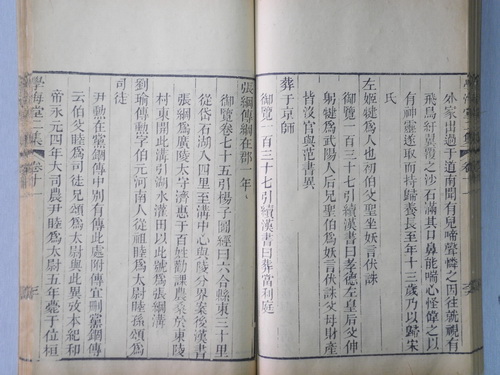 外家出過于道南聞有兒啼聲憐之因往就視有
飛鳥紆翼覆之沙石滿其口鼻能喘心怪偉之以
有神靈遂取而持歸養長至年十三歲乃以歸宋
氏
左姬犍爲人也初伯父聖坐妖言伏誅
御覽一百三十七引續漢書曰孝德左皇后父仲
躬犍爲武陽人后兄聖伯爲妖言伏誅父母財產
皆沒官與范書異
葬于京師
御覽一百三十七引續漢書曰葬當利庭
張綱傳在郡一年
御覽卷七十五引楊子圖經曰六合縣東三十里
從岱石湖入四里至溝中心與陵分界案後漢書
張綱爲廣陵太守濟惠于百姓勸課農桑於東陵
村東開此溝引湖水灌田以此號爲張綱溝
劉瑜傳勲字伯元河南人從祖睦爲太尉睦孫頌爲
司徒
尹勲在黨錮傳中別有傳此處附傳宜刪黨錮傳
云伯父睦爲司徒兄頌爲太尉與此異攷本紀和
帝永元四年大司農尹睦爲太尉五年薨于位桓
學海堂 集 卷十一